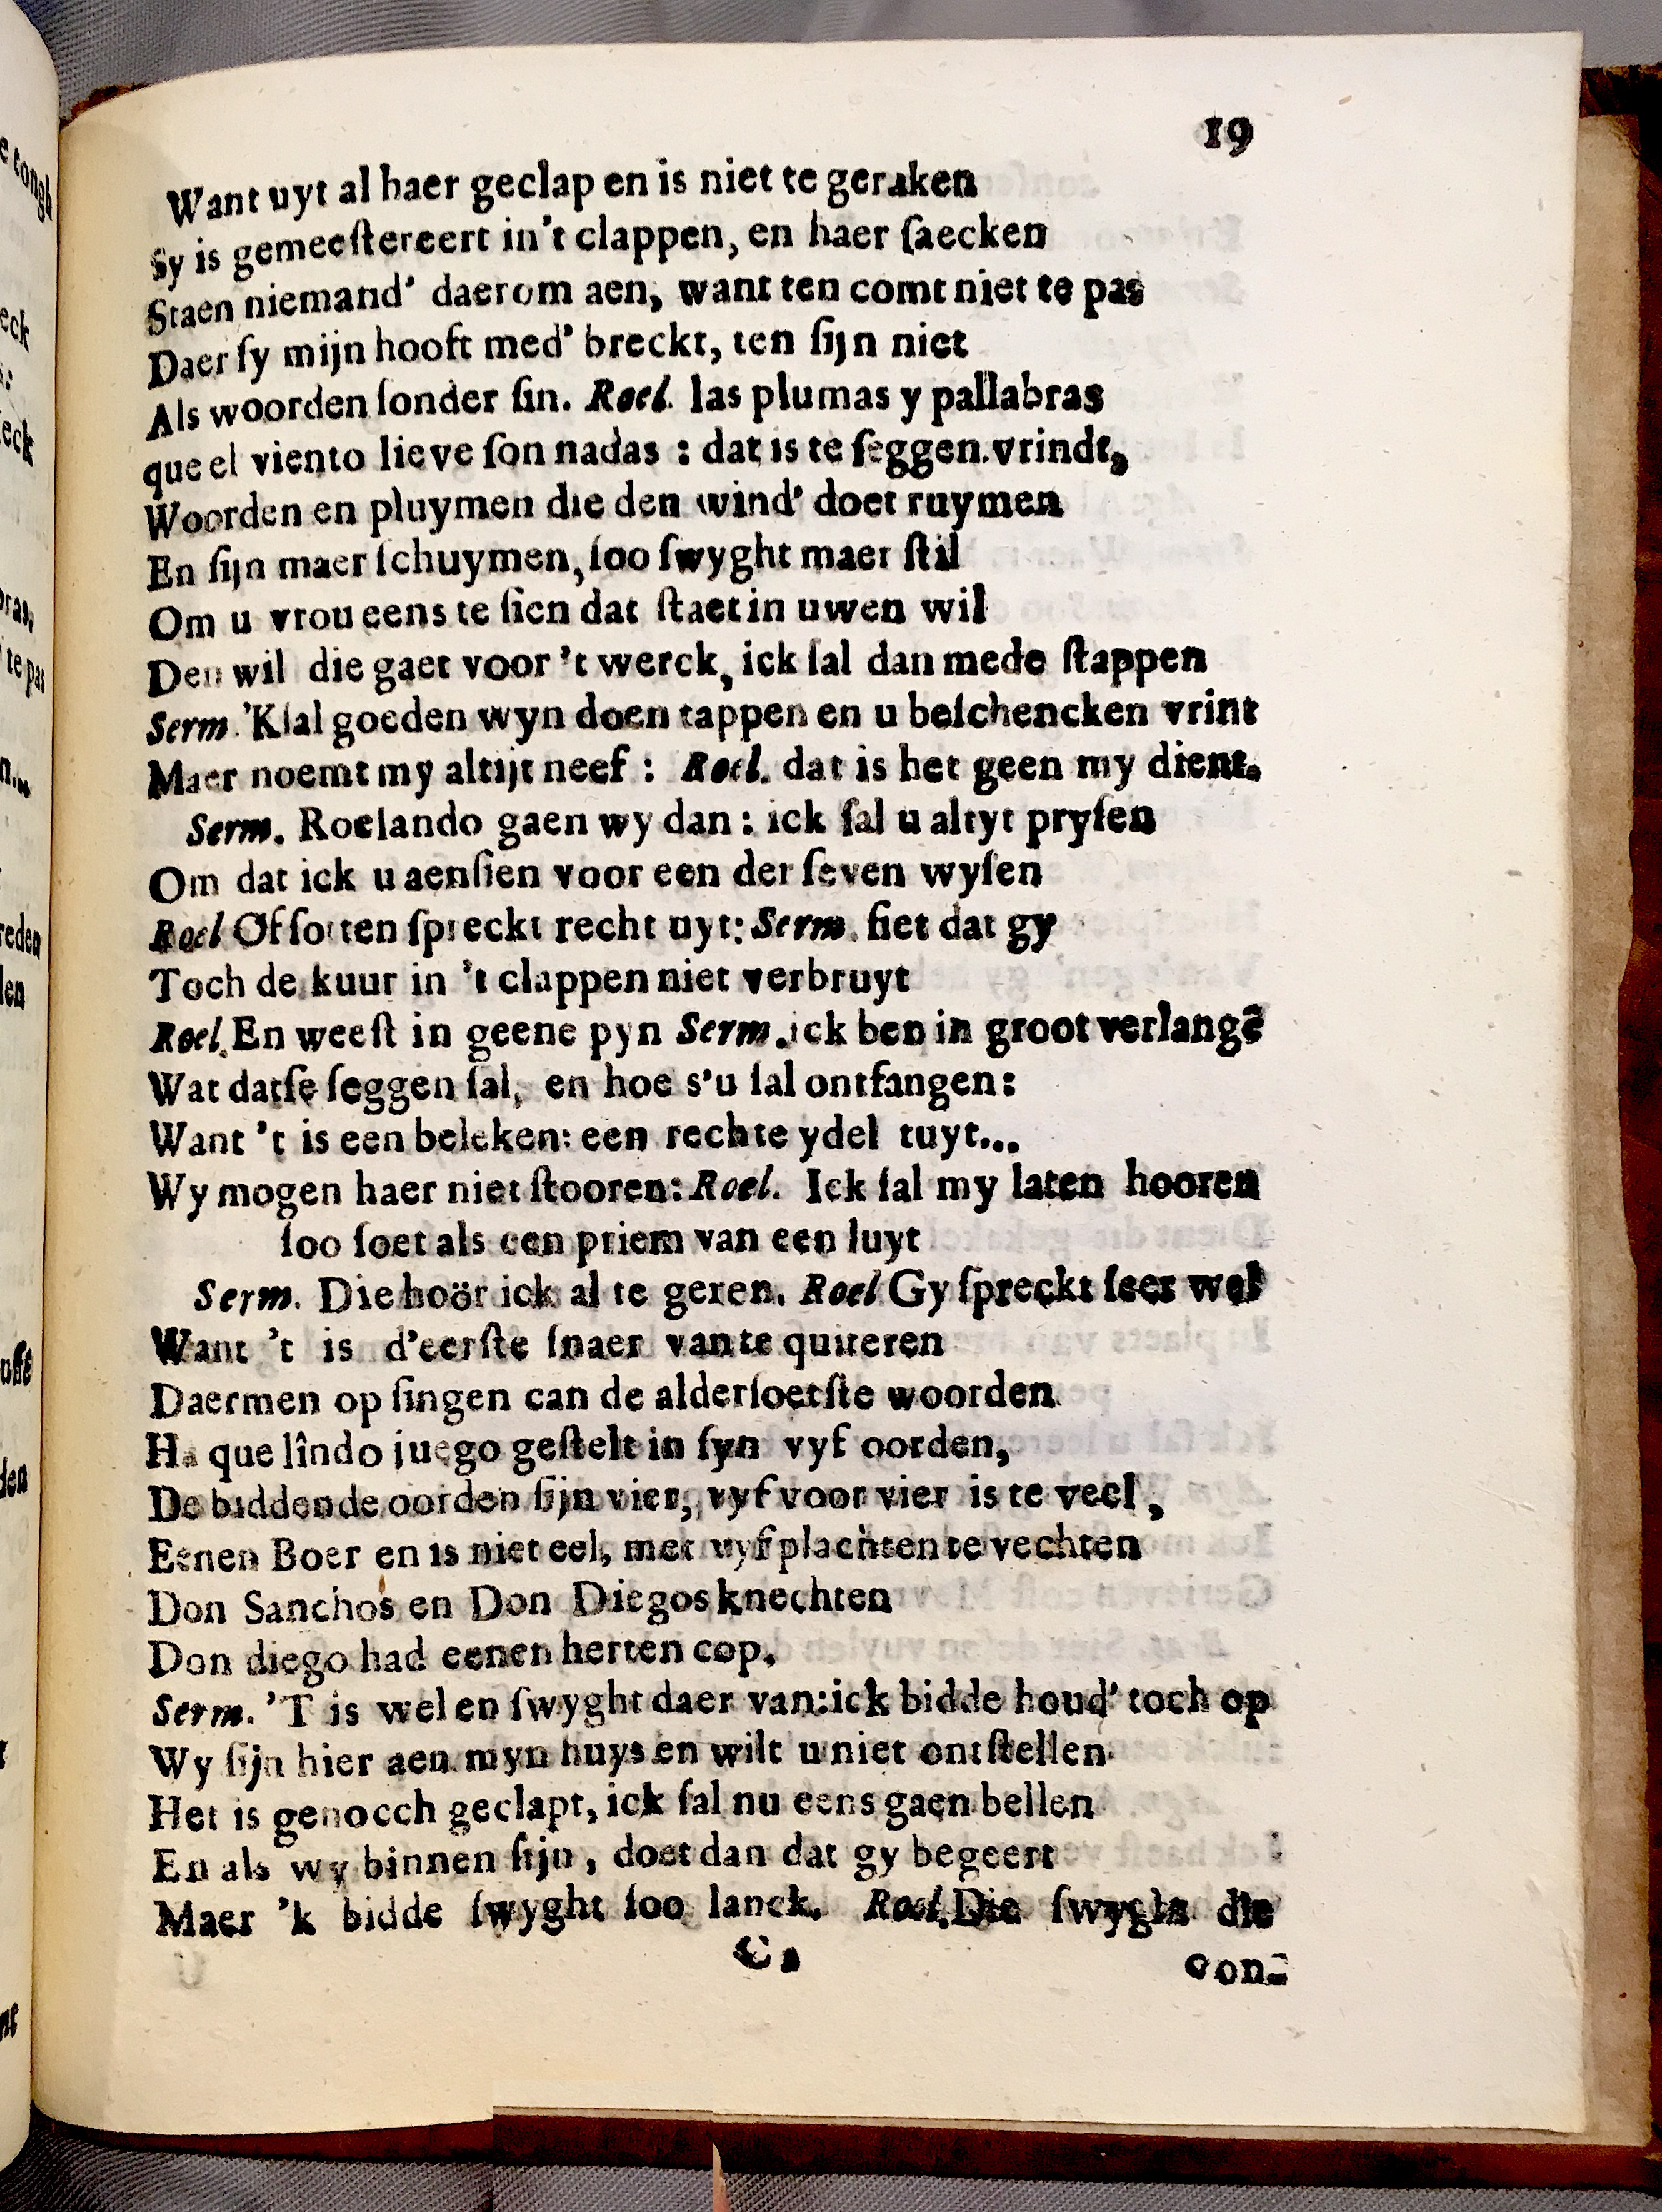 19
Want uyt al haer geclap en is niet te geraken
Sy is gemeeſtereert in't clappen, en haer ſaecken
Staen niemand' daerom aen, want ten comt niet te pas
Daer ſy mijn hooft med' breckt, ten ſijn niet
Als woorden ſonder ſin. Roel. las plumas y pallabras
que el viento lieve ſon nadas : dat is te ſeggen vrindt,
Woorden en pluymen die den wind' doet ruymen
En ſijn maer ſchuymen, ſoo ſwyght maer ſtil
Om u vrou eens te ſien dat ſtaet in uwen wil
Den wil die gaet voor 't werck, ick ſal dan mede ſtappen
Serm. 'Kſal goeden wyn doen tappen en u beſchencken vrint
Maer noemt my altijt neef : Roel. dat is het geen my dient.
Serm. Roelando gaen wy dan : ick ſal u altyt pryſen
Om dat ick u aenſien voor een der ſeven wyſen
Roel Of ſotten ſpreckt recht uyt: Serm. ſiet dat gy
Toch de kuur in 't clappen niet verbruyt
Roel. En weeſt in geene pyn Serm. ick ben in groot verlangē
Wat datſe ſeggen ſal, en hoe s'u ſal ontfangen:
Want 't is een beleken: een rechte ydel tuyt...
Wy mogen haer niet ſtooren: Roel. Ick ſal my laten hooren
ſoo ſoet als een priem van een luyt
Serm. Die hoör ick al te geren. Roel Gy ſpreckt ſeer wel
Want 't is d'eerſte ſnaer van te quiteren
Daermen op ſingen can de alderſoetſte woorden
Ha que lîndo juego geſtelt in ſyn vyf oorden,
De biddende oorden ſijn vier, vyf voor vier is te veel,
Eenen Boer en is niet eel, met vyf plachten te vechten
Don Sanchos en Don Diegos knechten
Don diego had eenen herten cop.
Serm. 'T is wel en ſwyght daer van: ick bidde houd' toch op
Wy ſijn hier aen myn huys en wilt u niet ontſtellen
Het is genoech geclapt, ick ſal nu eens gaen bellen
En als wy binnen ſijn, doet dan dat gy begeert
Maer 'k bidde ſwyght ſoo lanck. Roel. Die ſwyght die
con-